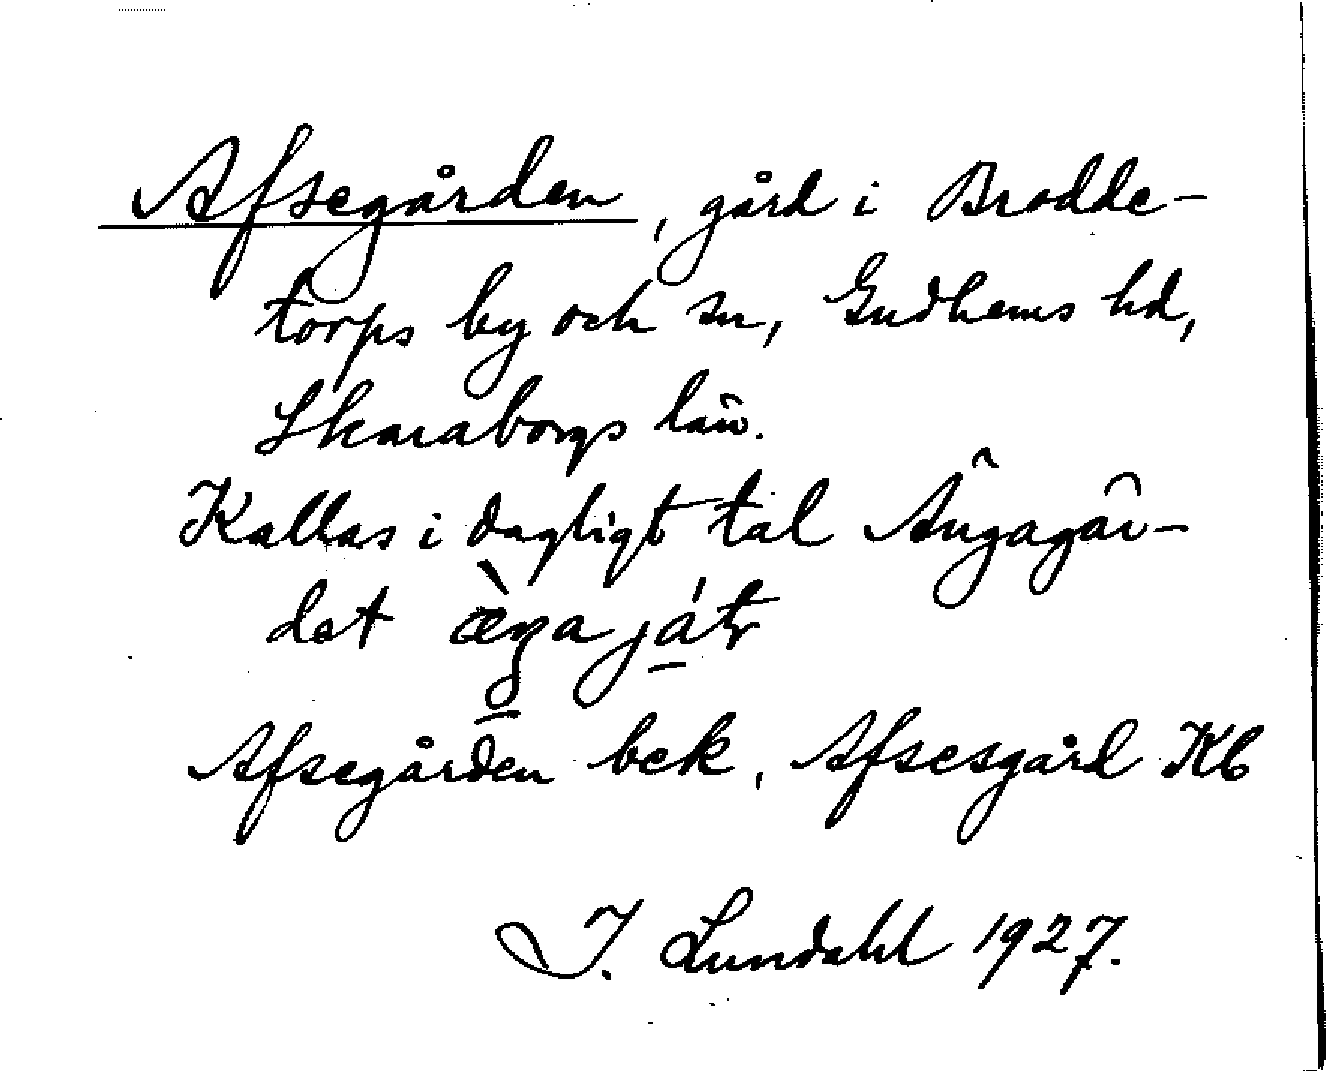 Afsegården, gård i Brodde-
torps by och sn, Gudhems hd,
Skaraborgs län.
Kallas i dagligt tal Ängagär-
det
Afsegården bek, Afsesgård Kb
I. Lundahl 1927.